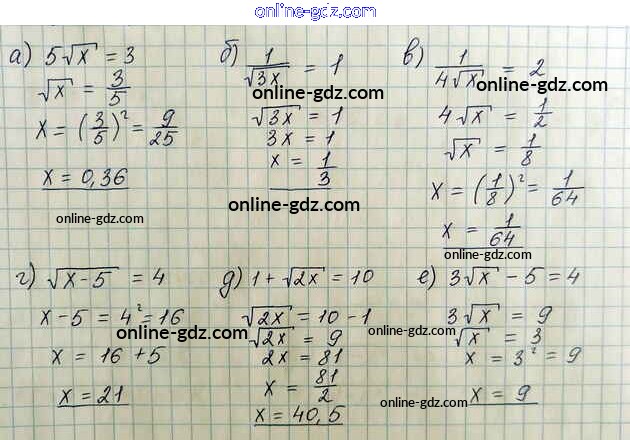 online-gdz.com
а) 5√x = 3
√x = 3/5
x = (3/5)² = 9/25
x = 0,36
online-gdz.com
б) 1/√3x = 1
online-gdz.com
√3x = 1
3x = 1
x = 1/3
online-gdz.com
в) 1/4√x = 2
online-gdz.com
4√x = 1/2
√x = 1/8
x = (1/8)² = 1/64
x = 1/64
online-gdz.com
г) √x-5 = 4
x-5 = 4² = 16
online-gdz.com
x = 16 + 5
x = 21
online-gdz.com
д) 1+√2x = 10
√2x = 10 - 1
√2x = 9
2x = 81
x = 81/2
x = 40,5
online-gdz.com
е) 3√x - 5 = 4
3√x = 9
online-gdz.com
√x = 3
x = 3² = 9
x = 9
online-gdz.com